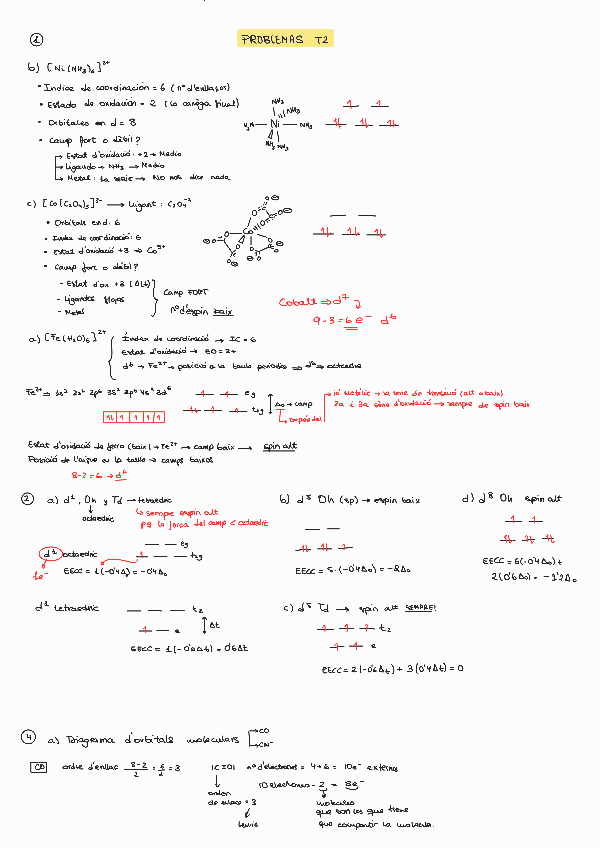 PROBLEMAS T2
1
b) [Ni(NH3)6]2+
• Indice de coordinación = 6 (nº d'enllaços)
• Estado de oxidación = 2 (la càrrega final)
• Orbitales en d = 8
• Camp fort o dèbil?
→ Estat d'oxidació: +2 → Medio
→ Ligando → NH3 → Medio
→ Metal: 1a serie → No nos dice nada
NH3
NH3
H3N
Ni
NH3
NH3
NH3
c) [Co(C2O4)3]3- → Lligant: C2O4-2
• Orbitals en d: 6
• Index de coordinació: 6
• Estat d'oxidació +3 → Co3+
• Camp fort o dèbil?
- Estat d'ox +3 (Alt)
- Ligandos
- Metal
Camp FORT
nº d'espin baix
Cobalt ⇒ d7
9-3=6e- d6
a) [Fe(H2O)6]2+
Índex de coordinació → IC = 6
Estat d'oxidació → EO = 2+
d6 → Fe2+ → posició a la taula periodica ⇒ d6 ⇒ octaedre
Fe2+ ⇒ 1s2 2s2 2p6 3s2 3p6 4s2 3d6
eg
t2g
Δo → camp
→ Depèn del
→ Sempre de spin baix
Estat d'oxidació de ferro (baix) → Fe2+ → camp baix → spin alt
Posició de l'aigua en la taula → camps baixos
8-2=6 → d6
2
a) d1, Oh y Td → tetraedric
octaedric
↳ sempre espin alt
pq la força del camp < octaedric
d1 octaedric
1e-
eg
t2g
EECC = 1(-0'4Δo) = -0'4Δo
b) d5 Oh (sp) → espin baix
EECC = 5·(-0'4Δo) = -2Δo
d) d8 Oh espin alt
EECC = 6(-0'4Δo) +
2(0'6Δo) = -1'2Δo
d1 tetraedric
t2
e
Δt
EECC = 1(-0'6Δt) = 0'6Δt
c) d5 Td → spin alt SEMPRE!
t2
e
EECC = 2(-0'6Δt) + 3(0'4Δt) = 0
4
a) Diagrama d'orbitals moleculars
→ CO
→ CN-
CO
ordre d'enllaç 8-2/2 = 6/2 = 3
nº d'electrons = 4+6 = 10e- externs
10 electrones - 2 = 8e-
orden
de enlace = 3
Lewis
moléculas
que son los que tiene
que compartir la molécula.